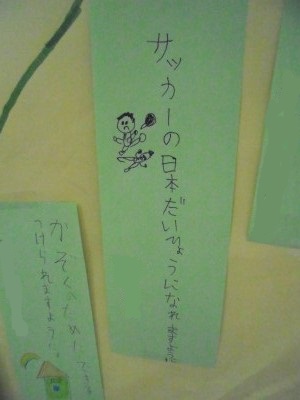 サッカーの日本だいひょうになれ
かぞくのため
つけられますように。